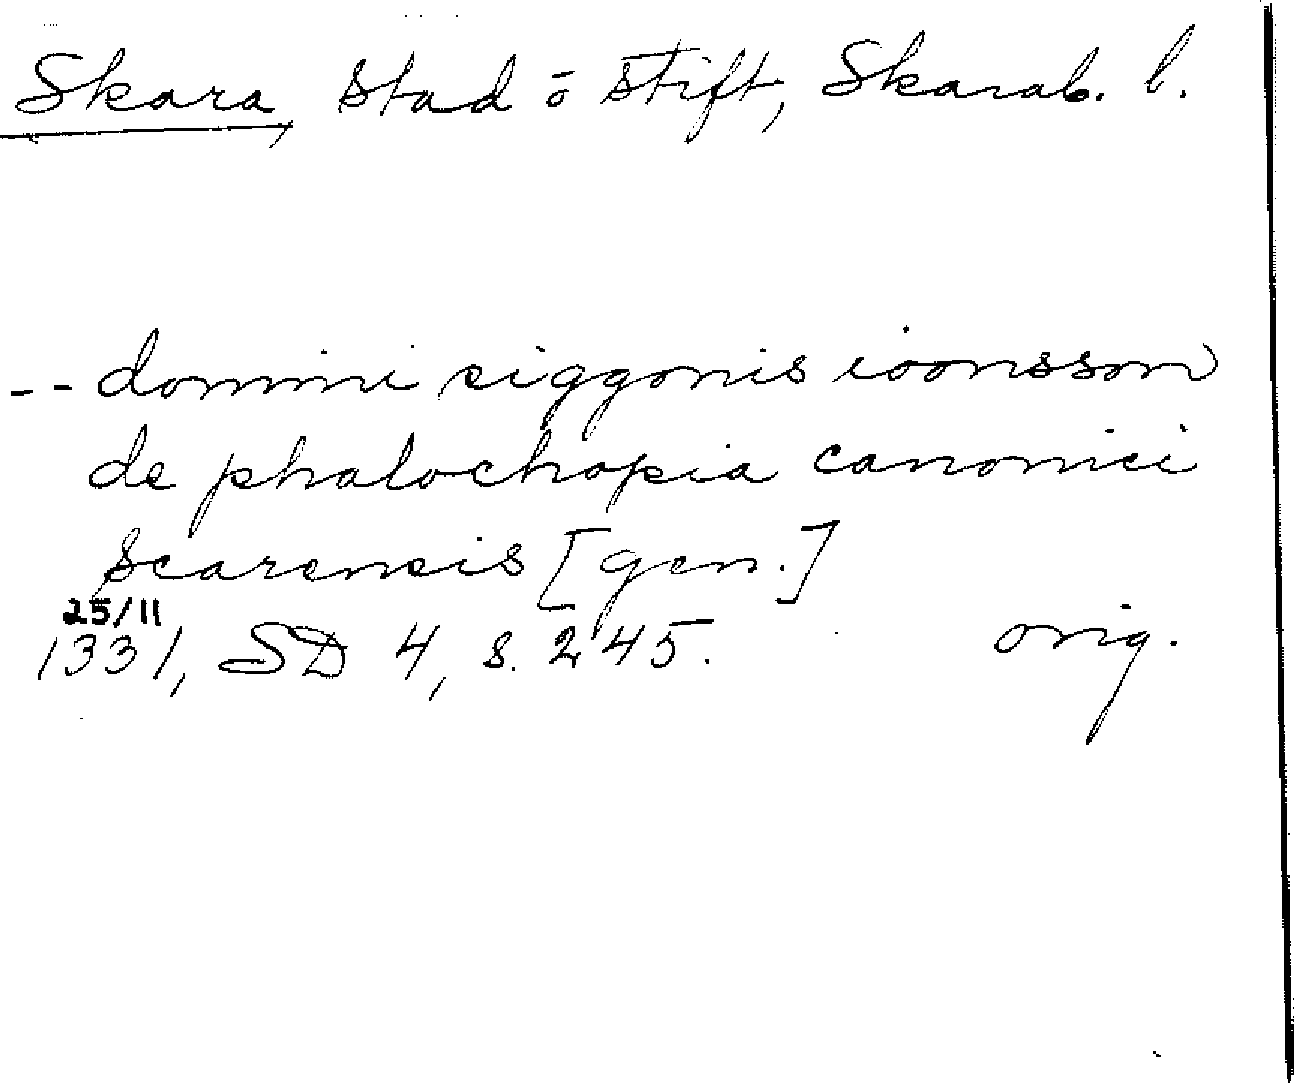 Skara, stad o stift, Skarab. l.
-- domini siggonis ioonsson
de phalochopia canonici
scarensis [gen.]
25/11
1331, SD 4, s. 245. orig.